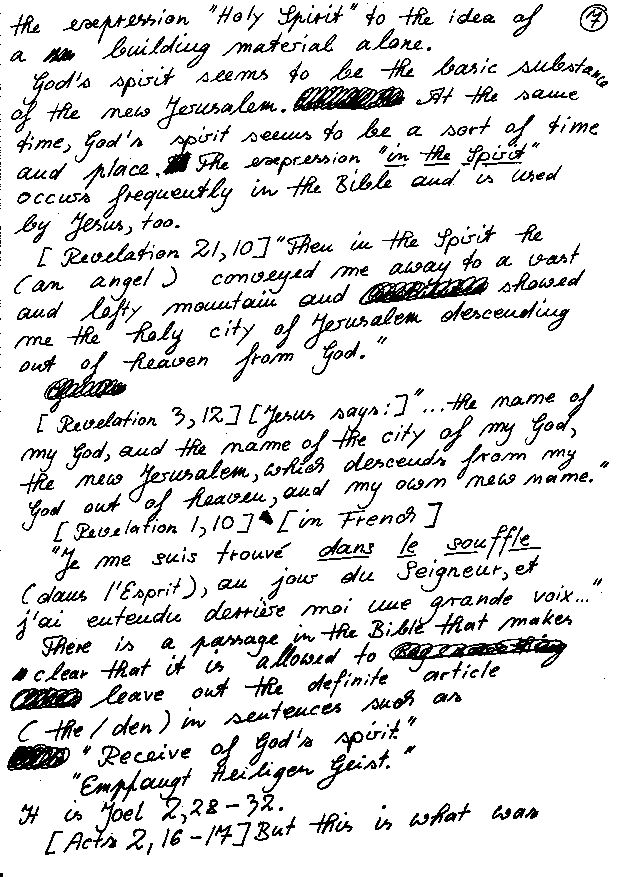 the expression "Holy Spirit" to the idea of
7
a building material alone.
God's spirit seems to be the basic substance
of the new Jerusalem. At the same
time, God's spirit seems to be a sort of time
and place. The expression "in the Spirit"
occurs frequently in the Bible and is used
by Jesus, too.
[Revelation 21,10] "Then in the Spirit he
(an angel) conveyed me away to a vast
and lofty mountain and showed
me the holy city of Jerusalem descending
out of heaven from God."
[Revelation 3,12] [Jesus says:] "...the name of
my God, and the name of the city of my God,
the new Jerusalem, which descends from my
God out of heaven, and my own new name."
[Revelation 1,10] [in French]
"Je me suis trouvé dans le souffle
(dans l'Esprit), au jour du Seigneur, et
j'ai entendu derrière moi une grande voix..."
There is a passage in the Bible that makes
clear that it is allowed to
leave out the definite article
(the/den) in sentences such as
"Receive of God's spirit."
"Empfangt Heiligen Geist."
It is Joel 2,28-32.
[Acts 2,16-17] But this is what was